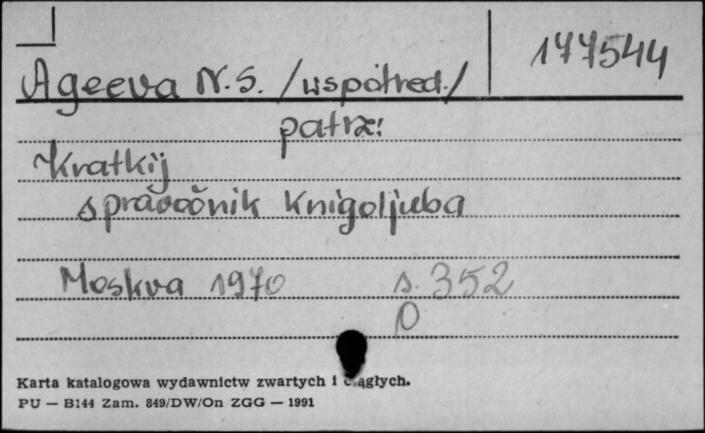 Ageeva N.S. /współred./ 177544
patrz:
Kratkij
spravočnik knigoljuba
Moskva 1970 s. 352
Karta katalogowa wydawnictw zwartych i ciągłych.
PU — B144 Zam. 849/DW/On ZGG — 1991